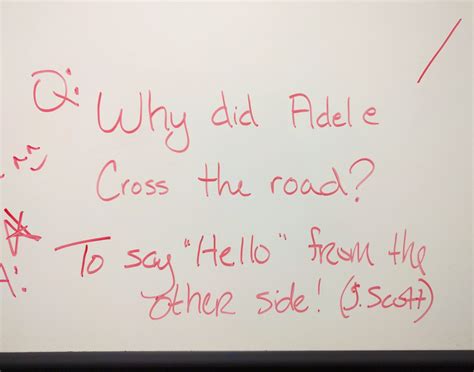 Q: Why did Adele
Cross the road?
A: To say "Hello" from the
other side! (J. Scott)